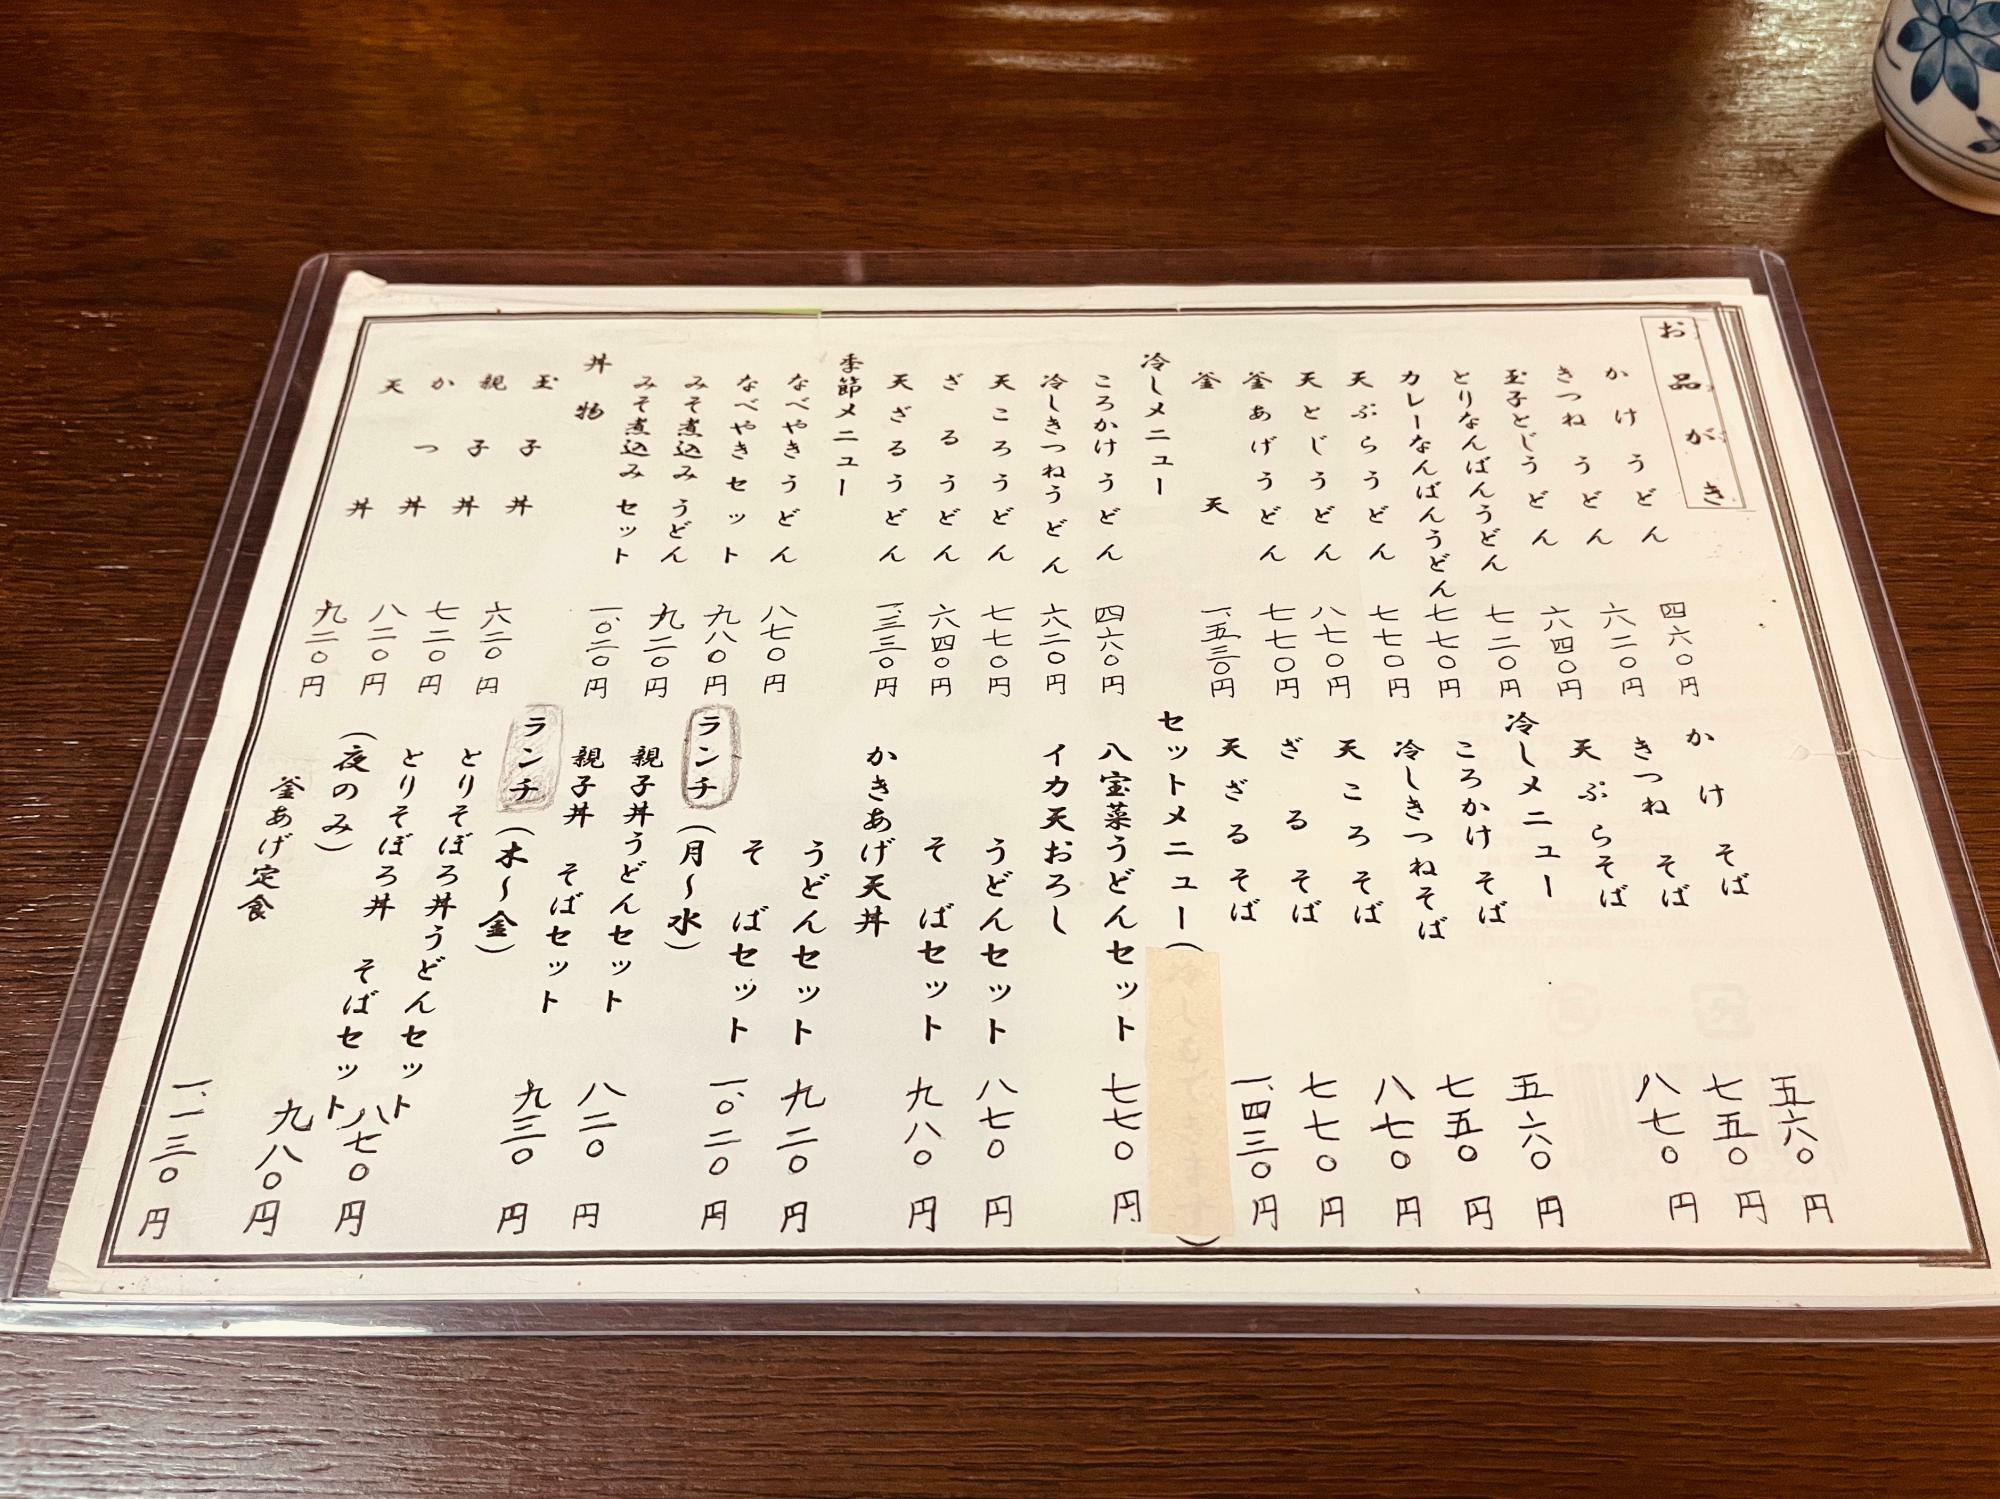 お品がき
かけうどん 四六〇円
きつねうどん 六二〇円
玉子とじうどん 六四〇円
とりなんばんうどん 七二〇円
カレーなんばんうどん 七七〇円
天ぷらうどん 七七〇円
天とじうどん 八七〇円
釜あげうどん 七七〇円
釜天 一、五三〇円
冷しメニュー
ころかけうどん 四六〇円
冷しきつねうどん 六二〇円
天ころうどん 七七〇円
ざるうどん 六四〇円
天ざるうどん 一、三三〇円
季節メニュー
なべやきうどん 八七〇円
なべやきセット 九八〇円
みそ煮込みうどん 九二〇円
みそ煮込みセット 一、〇二〇円
丼物
玉子丼 六二〇円
親子丼 七二〇円
かつ丼 八二〇円
天丼 九二〇円
かけそば 五六〇円
きつねそば 七五〇円
天ぷらそば 八七〇円
冷しメニュー
ころかけそば 五六〇円
冷しきつねそば 七五〇円
天ころそば 八七〇円
ざるそば 七七〇円
天ざるそば 一、四三〇円
セットメニュー( )
八宝菜うどんセット 七七〇円
イカ天おろし
うどんセット 八七〇円
そばセット 九八〇円
かきあげ天丼
うどんセット 九二〇円
そばセット 一、〇二〇円
ランチ(月〜水)
親子丼うどんセット 八二〇円
親子丼 そばセット 九三〇円
ランチ(木〜金)
とりそぼろ丼うどんセット 八七〇円
とりそぼろ丼 そばセット 九八〇円
(夜のみ)
釜あげ定食 一、一三〇円